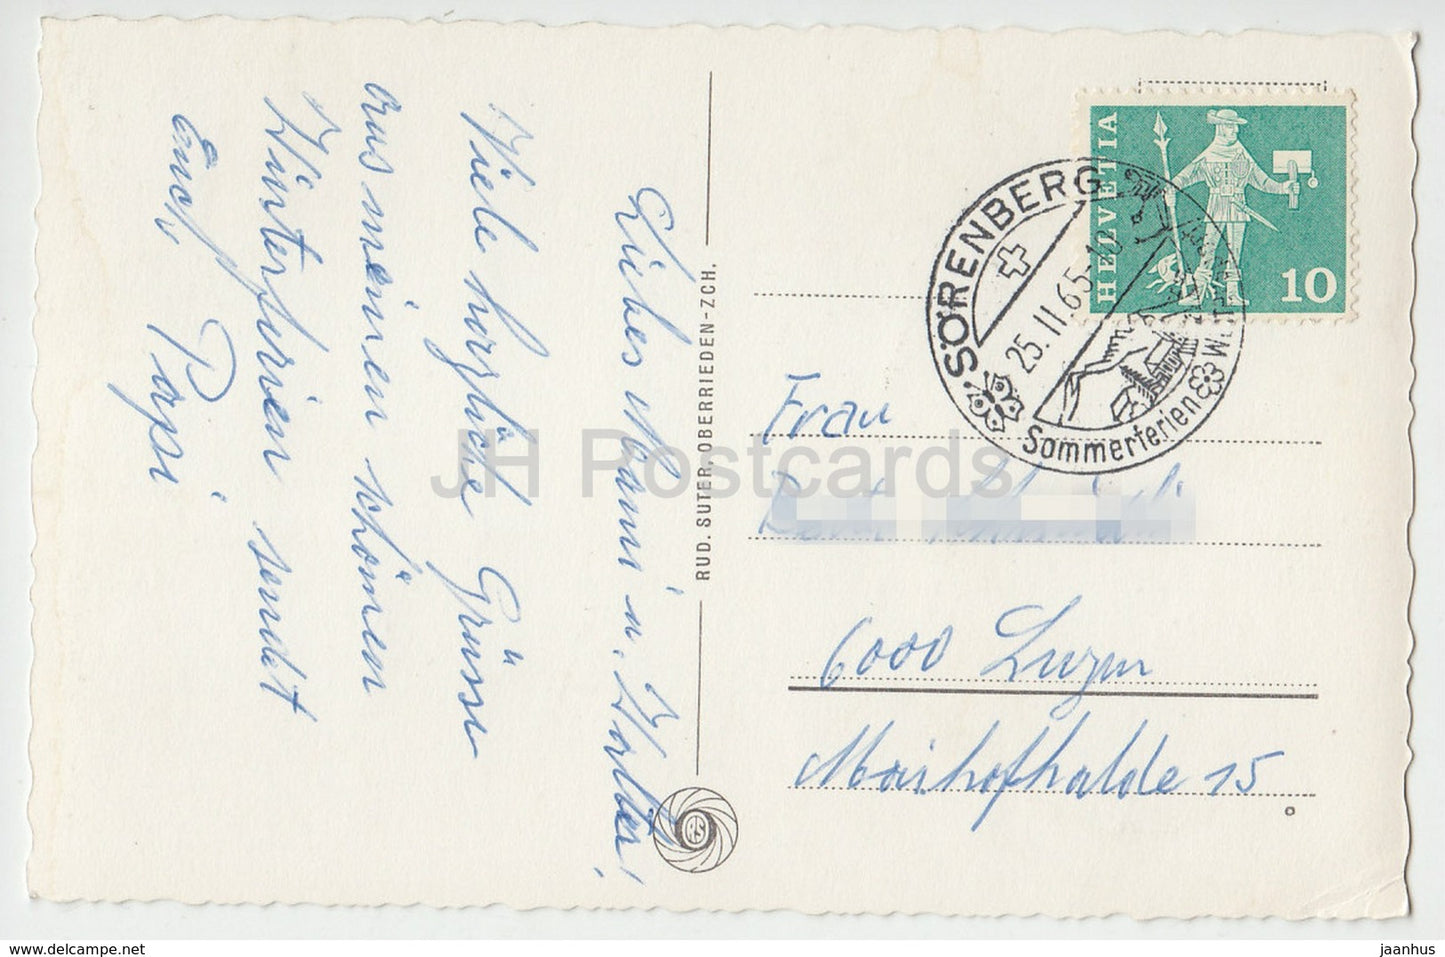 Liebes Mami u. Walter!
Viele herzliche Grüsse
aus meinen schönen
Winterferien sendet
Euch Papi
RUD. SUTER, OBERRIEDEN-ZCH.
RS
HELVETIA
10
SÖRENBERG
25.11.65-18
1166 M.Ü.M
Sommerferien
Frau
6000 Luzern
Maihofhalde 15
JH Postcards
www.delcampe.net
jaanhus